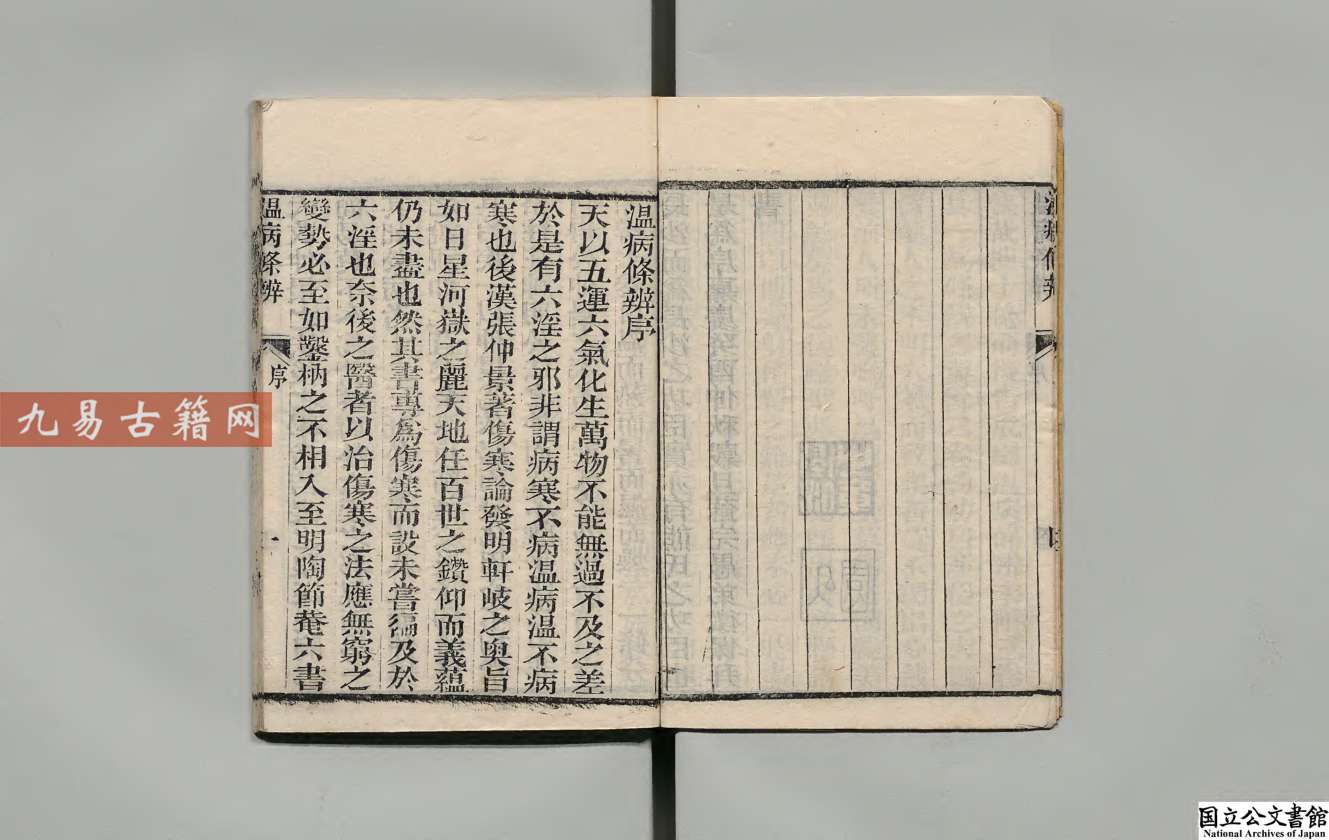 温病條辨序
天以五運六氣化生萬物不能無過不及之差
於是有六淫之邪非謂病寒不病温病温不病
寒也後漢張仲景著傷寒論發明軒岐之奥旨
如日星河嶽之麗天地任百世之鑽仰而義蘊
仍未盡也然其書專爲傷寒而設未嘗徧及於
六淫也奈後之醫者以治傷寒之法應無窮之
變勢必至如鑿枘之不相入至明陶節菴六書
温病條辨
序
一
九易古籍网
国立公文書館
National Archives of Japan